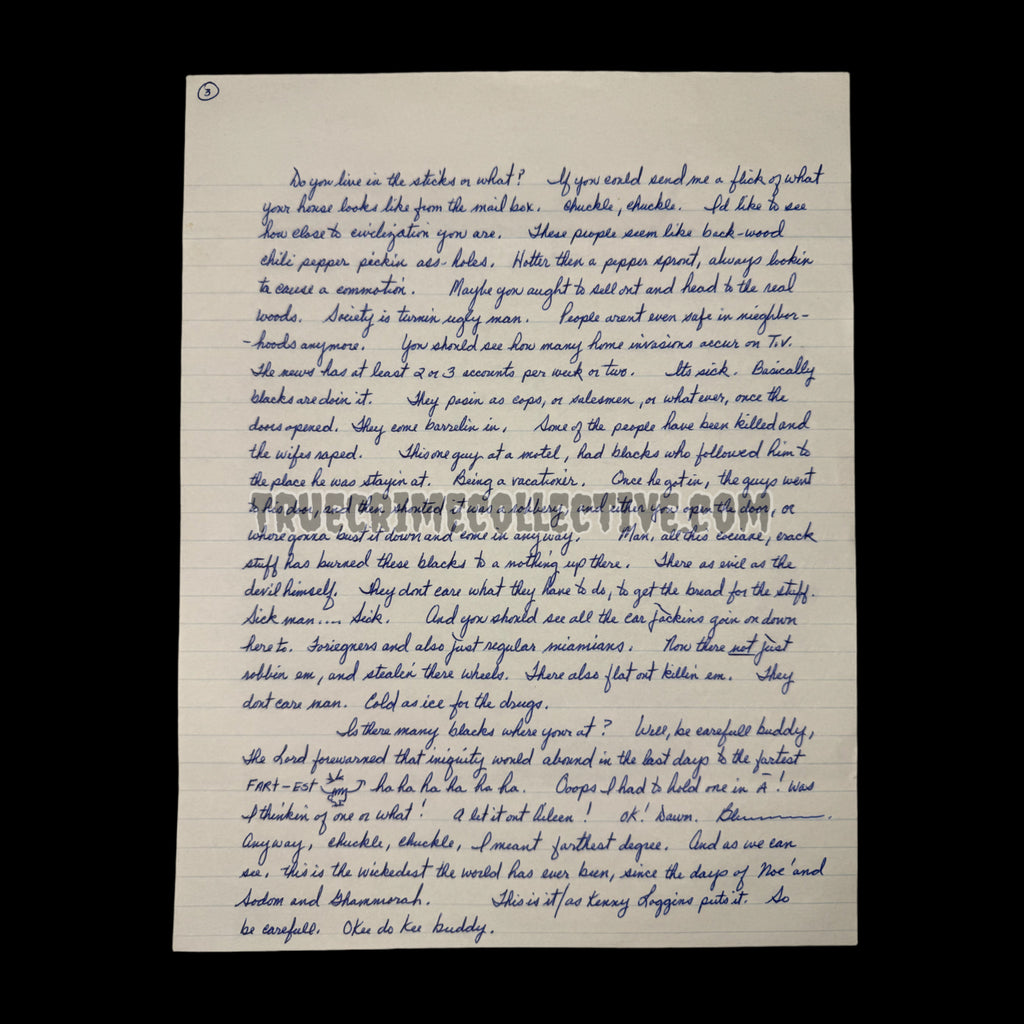 3
Do you live in the sticks or what? If you could send me a flick of what
your house looks like from the mail box. Chuckle, chuckle. I'd like to see
how close to civilization you are. These people seem like back-wood
chili pepper pickin ass-holes. Hotter then a pepper sprout, always lookin
to cause a commotion. Maybe you aught to sell out and head to the real
woods. Society is turnin ugly man. People arent even safe in nieghbor-
-hoods anymore. You should see how many home invasions accur on T.V.
The news has at least 2 or 3 accounts per week or two. Its sick. Basically
blacks are doin it. They posin as cops, or salesmen, or what ever, once the
doors opened. They come barrelin in. Some of the people have been killed and
the wifes raped. This one guy at a motel, had blacks who followed him to
the place he was stayin at. Being a vacationer. Once he got in, the guys went
to his door, and then shouted it was a robbery and either you open the door, or
TRUECRIMECOLLECTIVE.COM
where gonna bust it down and come in any way. Man, all this cociane, crack
stuff has burned these blacks to a nothing up there. There as evil as the
devil himself. They dont care what they have to do, to get the bread for the stuff.
Sick man.... Sick. And you should see all the car jackins goin on down
here to. Foriegners and also just regular miamians. Now there not just
robbin em, and stealin' there wheels. There also flat out killin em. They
dont care man. Cold as ice for the drugs.
Is there many blacks where your at? Well, be carefull buddy,
The Lord forewarned that iniquity would abound in the last days to the fartest
FART-EST ha ha ha ha ha ha. Ooops I had to hold one in A! Was
I thinkin of one or what! A let it out Aileen! OK! Dawn.
Anyway, chuckle, chuckle, I meant farthest degree. And as we can
see. this is the wickedest the world has ever been, since the days of Noe' and
Sodom and Ghammorah. This is it/as Kenny Loggins puts it. So
be carefull. Okee do Kee buddy.